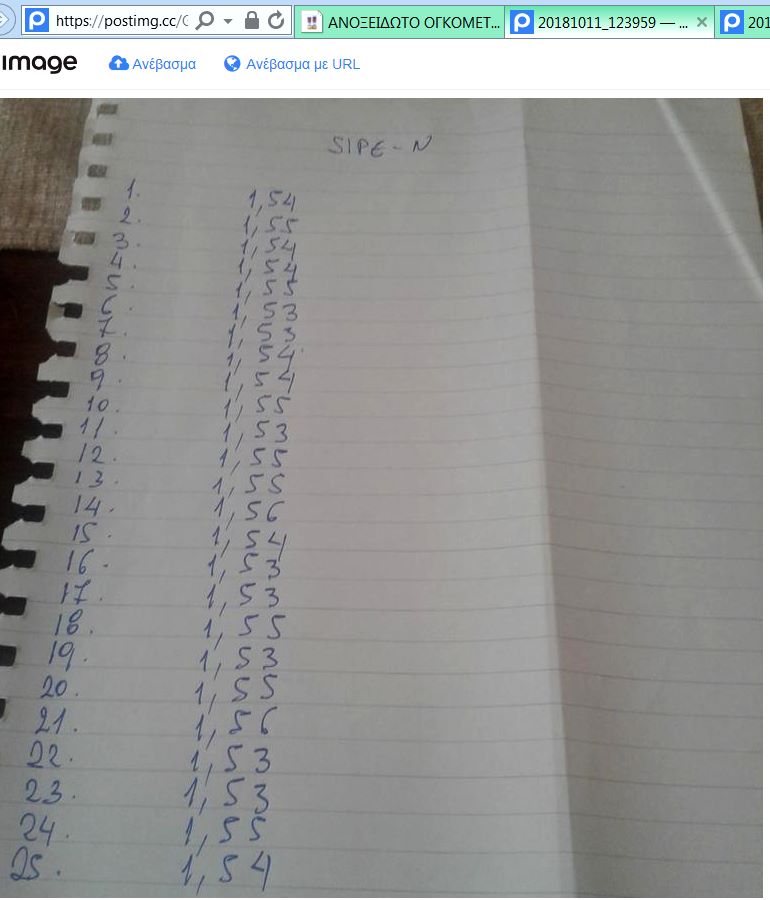 https://postimg.cc/
ΑΝΟΞΕΙΔΩΤΟ ΟΓΚΟΜΕΤ...
20181011_123959 — ...
201
image
Ανέβασμα
Ανέβασμα με URL
SIPE-N
1. 1,54
2. 1,55
3. 1,54
4. 1,54
5. 1,55
6. 1,53
7. 1,53
8. 1,54
9. 1,54
10. 1,55
11. 1,53
12. 1,55
13. 1,55
14. 1,56
15. 1,54
16. 1,53
17. 1,53
18. 1,55
19. 1,53
20. 1,55
21. 1,56
22. 1,53
23. 1,53
24. 1,55
25. 1,54